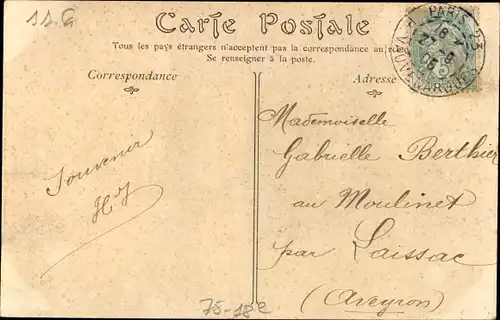 11.G
Carte Postale
Tous les pays étrangers n'acceptent pas la correspondance au
Se renseigner à la poste.
Correspondance
Adresse
PARIS 23
R. VAUVENARGUES
Souvenir
Mademoiselle
Gabrielle Berthier
au Moulinet
par Laissac
(Aveyron)
75-18e